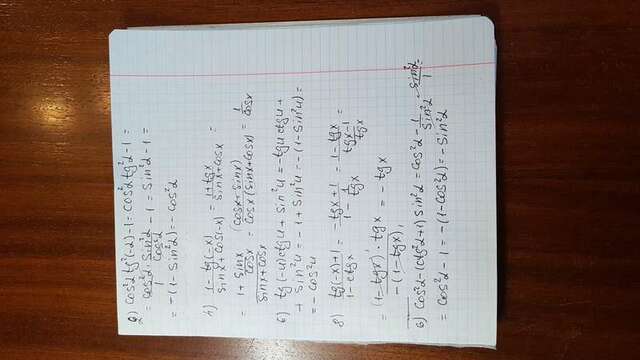 2) cos²α tg²(-α) - 1 = cos²α tg²α - 1 =
= cos²α/1 · sin²α/cos²α - 1 = sin²α - 1 =
= -(1 - sin²α) = - cos²α
4) (1 - tg(-x))/(sinx + cos(-x)) = (1 + tgx)/(sinx + cosx) =
= (1 + sinx/cosx)/(sinx + cosx) = (cosx + sinx)/(cosx(sinx + cosx)) = 1/cosx
6) tg(-u)ctgu + sin²u = -tgu ctgu +
+ sin²u = -1 + sin²u = -(1 - sin²u) =
= - cos²u
8) (tg(-x) + 1)/(1 - ctgx) = (-tgx + 1)/(1 - 1/tgx) = (1 - tgx)/((tgx - 1)/tgx) =
= ((1 - tgx)¹ · tgx)/(-(1 - tgx)₁) = - tgx
6) cos²α - (ctg²α + 1) sin²α = cos²α - 1/sin²α · sin²α/1 =
= cos²α - 1 = -(1 - cos²α) = - sin²α